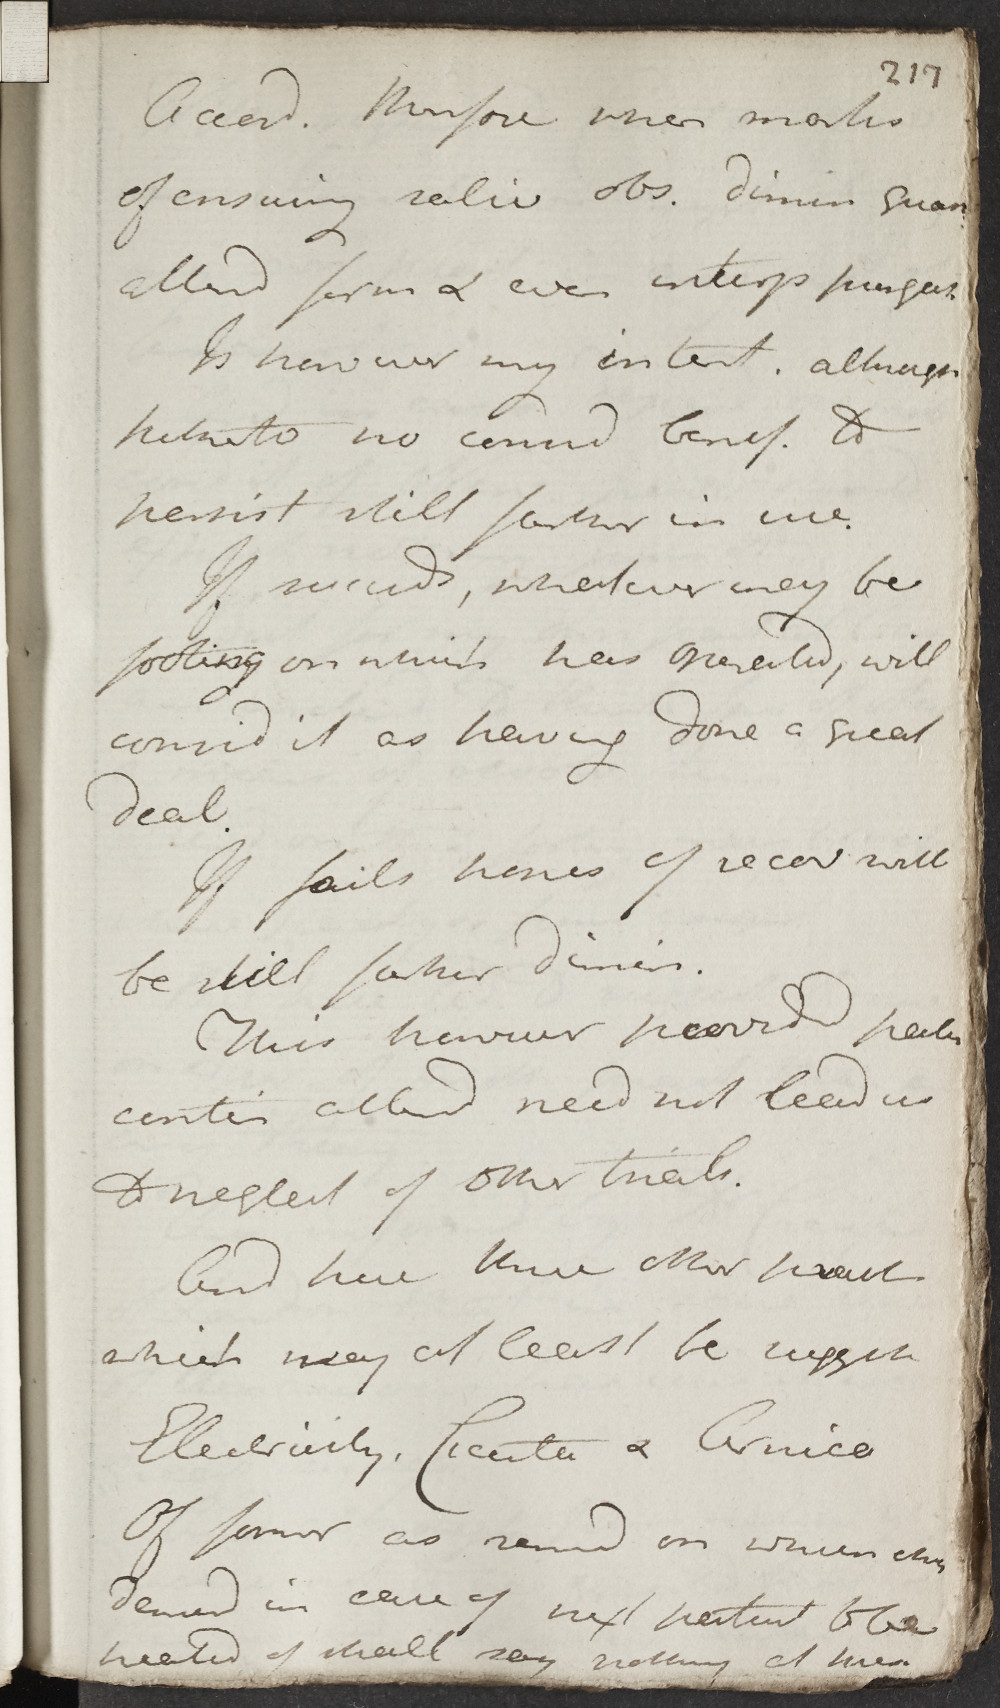 217
Accord. Therefore when marks
of ensuing saliv obs. dimin quan
allend form & even interp purgat
Is however my intent. although
hitherto no consid benef. to
persist still farther in use.
If succeeds, whatever may be
footing on which has operated, will
consid it as having done a great
deal.
If fails hopes of recov will
be still farther dimin.
This however provided
contin attend need not lead us
to neglect of other trials.
And here three other
which may at least be suggest
Electricity, Cicuta & Arnica
Of former as remed on which
depend in case of next patient to be
treated of shall say nothing at